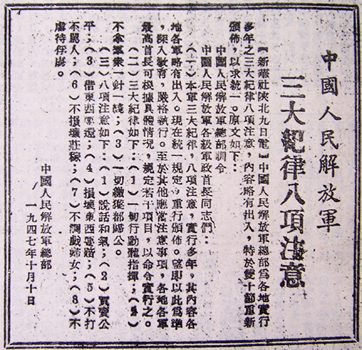 中國人民解放軍
三大紀律八項注意
【新華社陝北九日電】中國人民解放軍總部爲各地實行
多年之三大紀律八項注意,內容略有出入,特於雙十節重新
頒佈,以求統一。原文如下:
中國人民解放軍總部訓令
中國人民解放軍各級軍政首長同志們:
(一)本軍三大紀律,八項注意,實行多年,其內容各
地各軍略有出入。現在統一規定,重行頒佈。望即以此爲準
,深入教育,嚴格執行。至於其他應當注意事項,各地各軍
最高首長可根據具體情況,規定若干項目,以命令實行之。
(二)三大紀律如下:(1)一切行動聽指揮;(2)
不拿羣衆一針一綫;(3)一切繳獲歸公。
(三)八項注意如下:(1)說話和氣;(2)買賣公
平;(3)借東西要還;(4)損壞東西要賠;(5)不打
不罵人;(6)不損壞莊稼;(7)不調戲婦女;(8)不
虐待俘虜。
中國人民解放軍總部
一九四七年十月十日